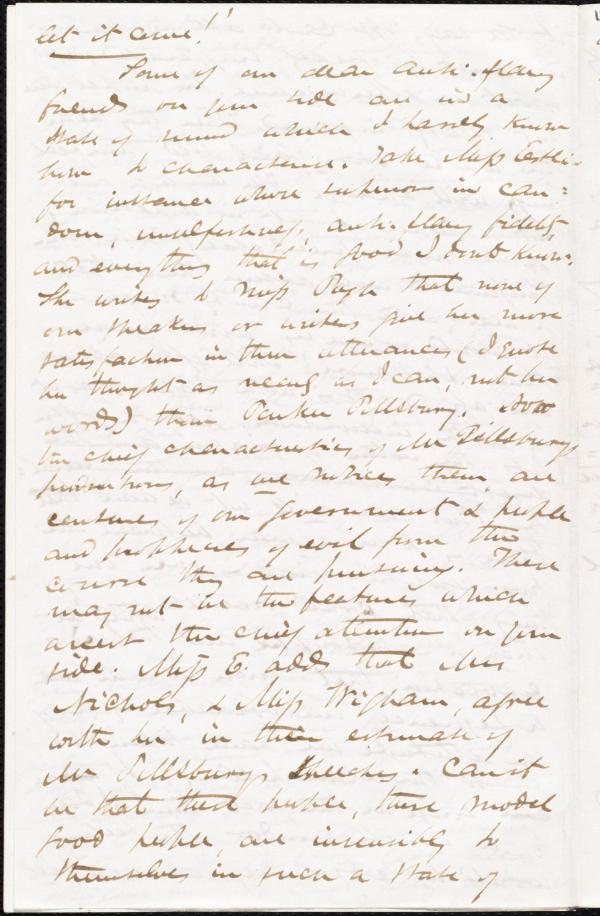 let it come!"
Some of our dear anti-slavery
friends on your side are in a
state of mind which I hardly know
how to characterise. Take Miss Estlin
for instance whose superior in can=
dour, unselfishness, anti-slavery fidelity,
and everything that is good I don't know.
She writes to Miss Pugh that none of
our speakers or writers give her more
satisfaction in their utterances (I quote
her thought as nearly as I can, not her
words) than Parker Pillsbury. Now
the chief characteristics of Mr Pillsbury's
productions, as we notice them, are
censures of our Government & people
and prophecies of evil from the
course they are pursuing. These
may not be the features which
arrest the chief attention on your
side. Miss E. adds that Mrs
Nichols, & Miss Wigham, agree
with her in their estimate of
Mr Pillsbury's speeches. Can it
be that these people, these model
good people, are insensibly to
themselves in such a state of